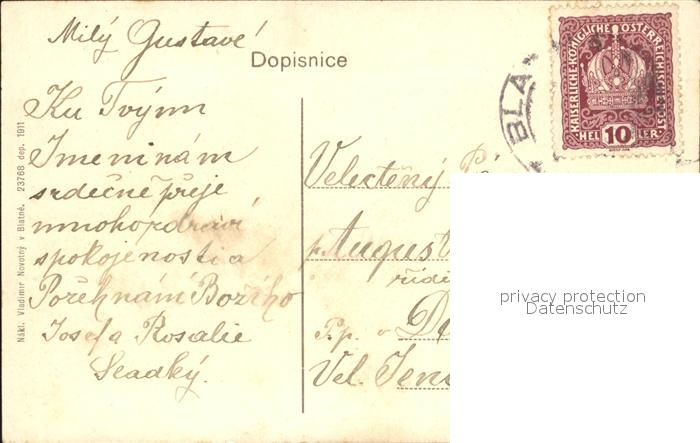 Milý Gustave!
Dopisnice
Ku Tvým
Jmeninám
srdečně přeje
mnoho zdraví
spokojenosti a
Požehnání Božího
Josef a Rosalie
Sladký.
Nákl. Vladimir Novotný v Blatné. 23768 dep. 1911
BLA
KAISERLICHE KÖNIGLICHE ÖSTERREICHISCHE POST
HELLER
10
Velectěný
p. August
řídi
P.p. v
Vel.
privacy protection
Datenschutz